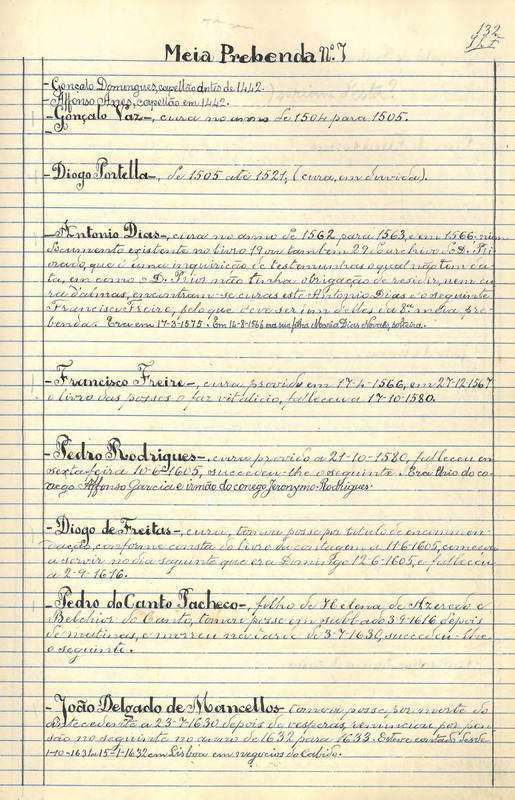 132
Meia Prebenda Nº. 7
- Gonçalo Domingues, capellão antes de 1442.
- Affonso Anes, capellão em 1442.
- Gonçalo Vaz -, cura no anno de 1504 para 1505.
- Diogo Portella -, de 1505 até 1521, (cura, em duvida).
- Antonio Dias -, cura no anno de 1562, para 1563, e em 1566, num
documento existente no livro 19 ou tambem 29 do archivo de D. Pri-
orado, que é uma inquirição de testemunhas o qual não tem da-
ta, em como o D. Prior não tinha obrigação de residir, nem cu-
ra d'almas, encontram-se curas este Antonio Dias e o seguinte
Francisco Freire, pelo que deve ser um d'elles da 8ª meia pre-
benda. Era em 17-3-1575. Em 14-8-1566 na sua folha Maria Dias Novaes, solteira.
- Francisco Freire -, cura provido em 17-4-1566, em 27-12-1567
o livro das posses o faz vitalicio, falleceu a 17-10-1580.
- Pedro Rodrigues -, cura provido a 21-10-1580, falleceu em
sexta-feira 10-6-1605, succedeu-lhe o seguinte. Era thio do co-
nego Affonso Garcia e irmão do conego Jeronymo Rodrigues.
- Diogo de Freitas -, cura, tomou posse por titulo de encommen-
dação, conforme consta do livro da contagem a 11-6-1605, começou
a servir no dia seguinte que era Domingo 12-6-1605, e falleceu
a 2-9-1616.
- Pedro do Canto Pacheco -, filho de Helena de Azeredo e
Belchior do Canto, tomou posse em sabbado 3-9-1616 depois
de matinas, e morreu na tarde de 3-7-1630, succedeu-lhe
o seguinte.
- João Delgado de Mancellos - tomou posse por morte do
antecedente a 23-7-1630 depois de vesperas, renunciou por pen-
são no seguinte no anno de 1632 para 1633. Esteve contado desde
1-10-1631 a 15-1-1632 em Lisboa em negocios do Cabido.